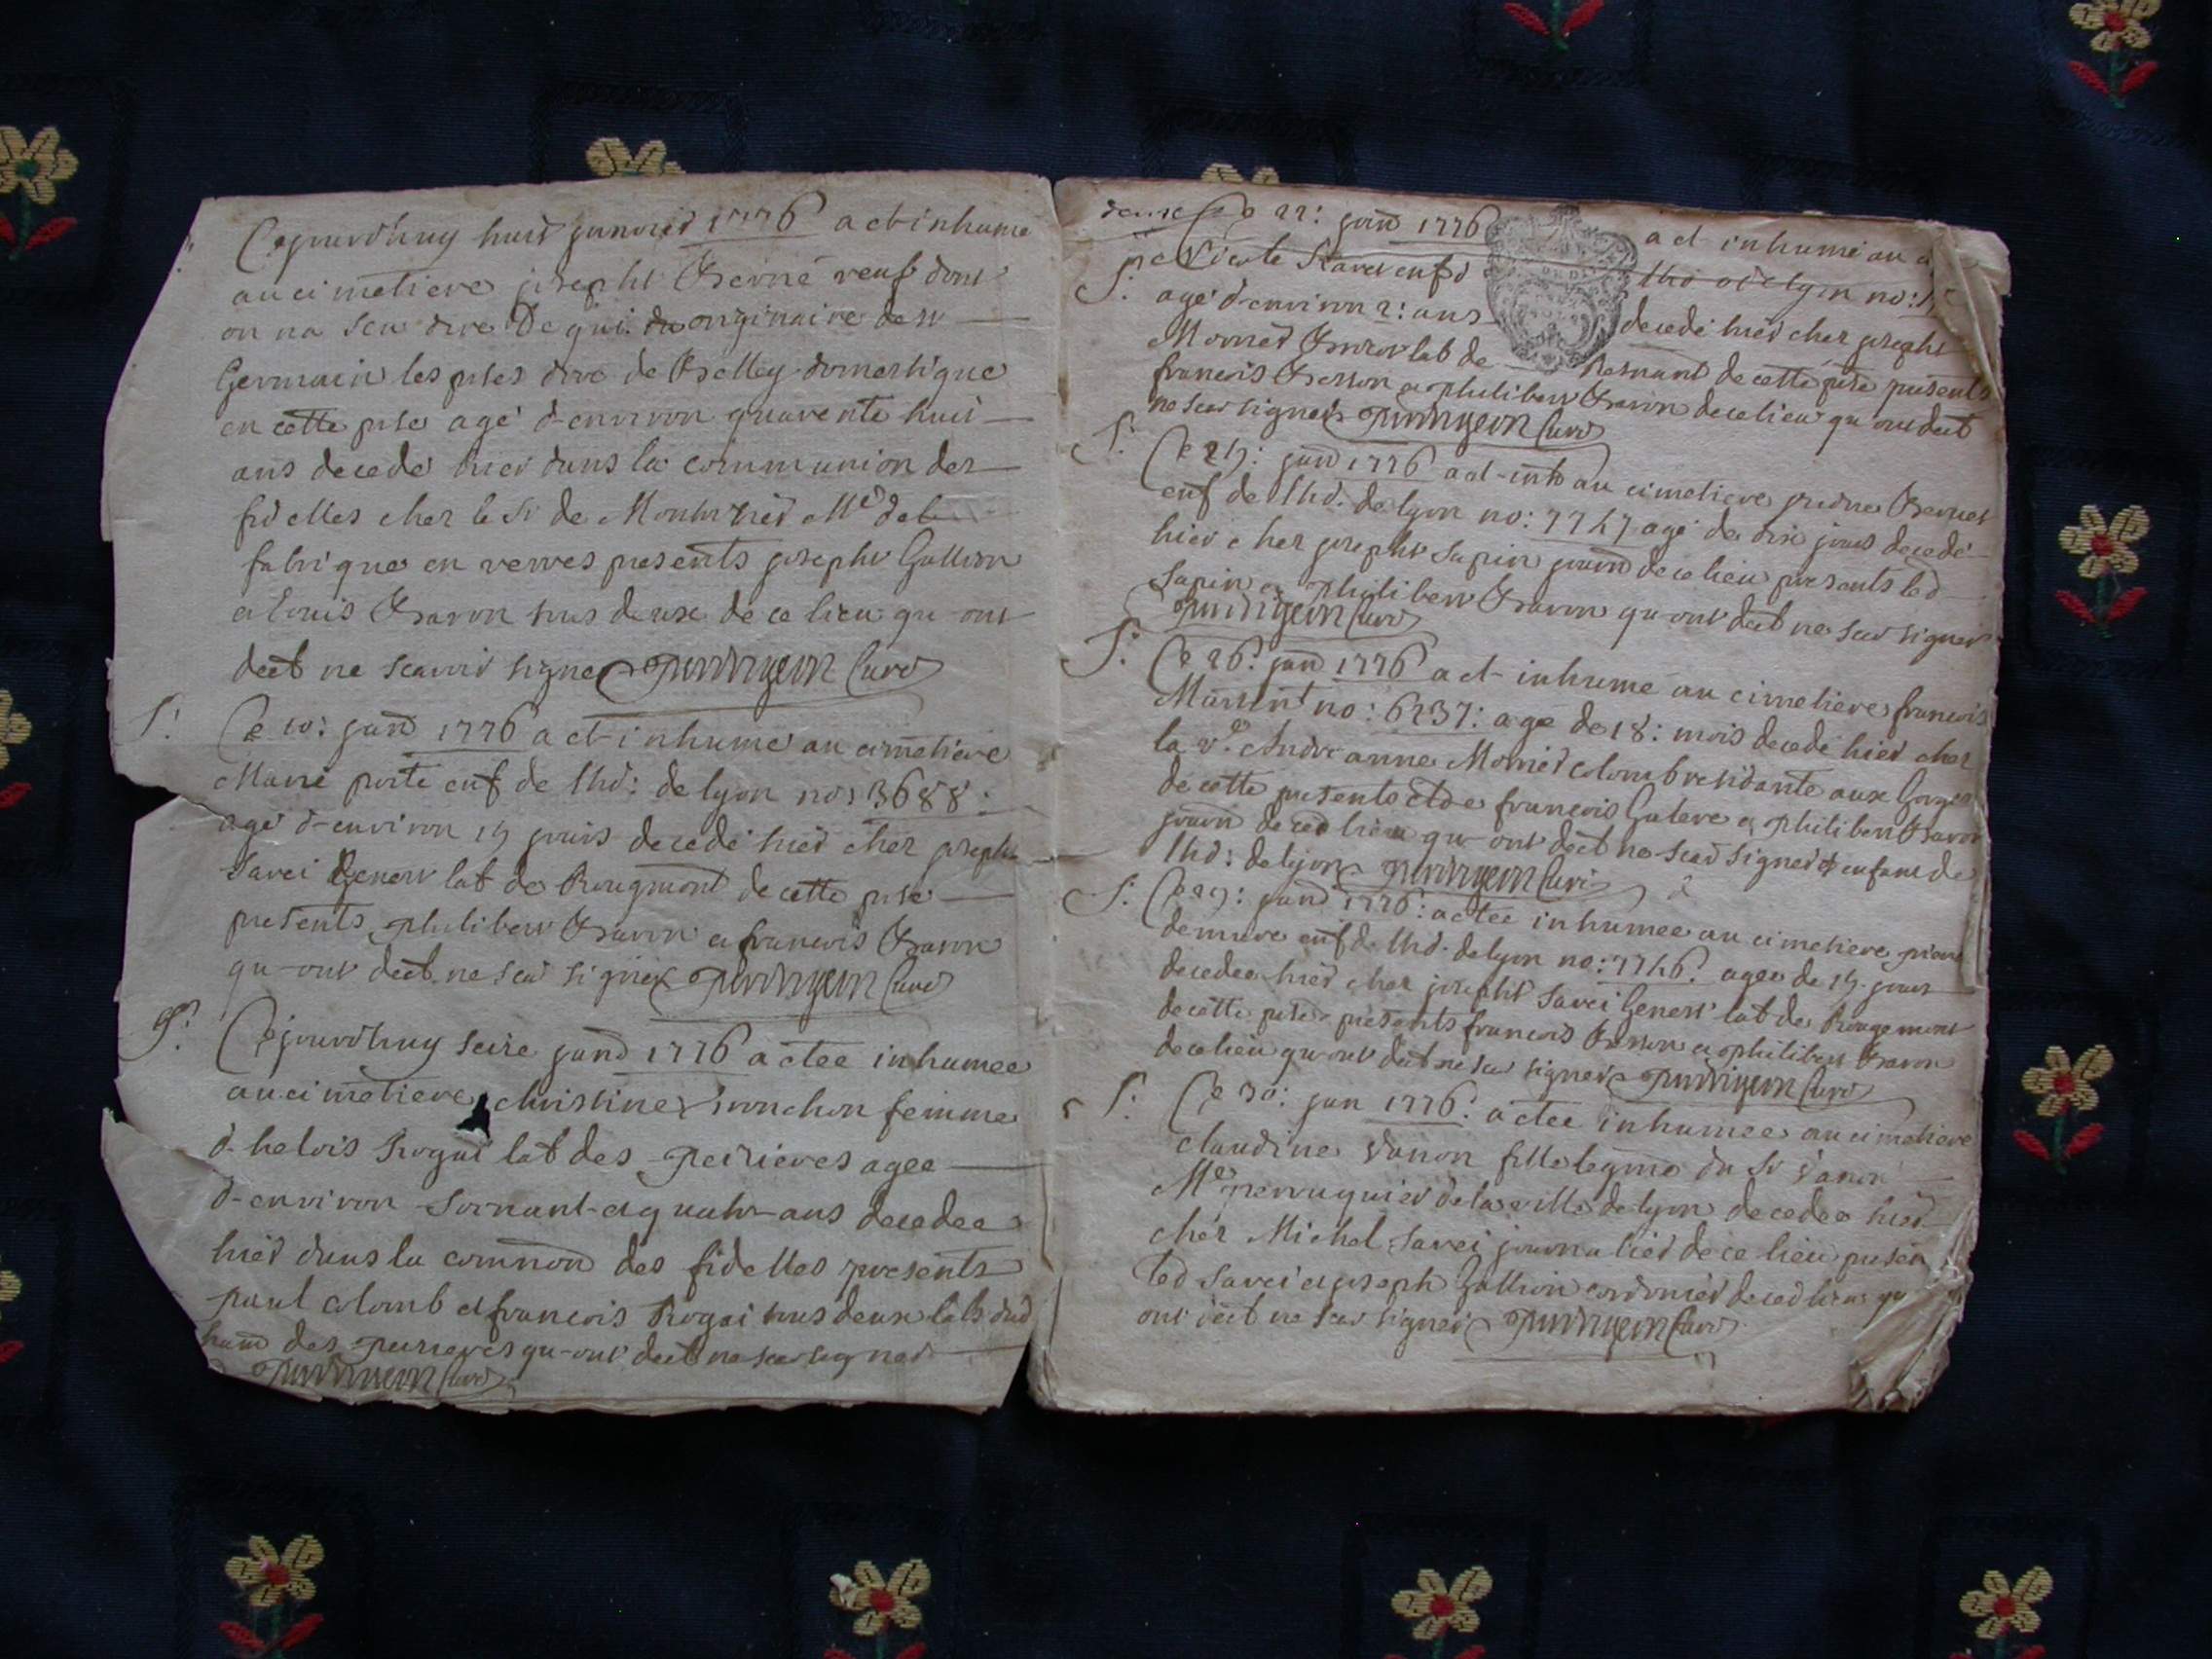 Cejourdhuy huit janvier 1776 a et inhumé
au cimetiere joseph Berné veuf dont
on na sceu dire de qui originaire de st
Germain les pses dioc de Belley domestique
en cette pse agé d'environ quarente huit
ans decedé hier dans la communion des
fidelles chez le Sr de Md de
fabrique en verres presents joseph Gallion
et louis Baron tous deux de ce lieu qu-ont
dect ne scavoir signer curé
S: Ce 10: janr 1776 a et inhumé au cimetiere
Marie porte enf de lhd: de lyon no: 3688:
agé d-environ 15 jours decedé hier chez joseph
Savei lab de Rougmont de cette pse
presents philibert Baron et francois Baron
qu-ont dect ne scav signer curé
Cejourdhuy seize janr 1776 a etée inhumée
au cimetiere christine femme
d- Rogai lab des Peirieres agée
d-environ soixant-et quatr-ans decedée
hier dans la common des fidelles presents
paul colomb et francois Rogai tous deux labs dud
ham des peirieres qu-ont dect ne scav signer
curé
Ce 22: janr 1776 a et inhumé au
enf d lhd de lyon no:
S: agé d-environ 2: ans decedé hier chez joseph
Mornet lab de de cette pse presents
francois Besson et philibert Baron de ce lieu qu ont dect
ne scav signer curé
S: Ce 25: janr 1776 a et-inh au cimetiere
enf de lhd. de lyon no: 7747 agé de dix jours decedé
hier chez joseph Sapin journ de ce lieu presents led
Sapin et philibert Baron qu-ont dect ne scav signer
curé
S: Ce 26: janr 1776 a et- inhumé au cimetiere francois
no: 6237: agé de 18: mois decedé hier chez
la ve. André anne Mornet colomb residante aux
de cette presents francois et philibert Baron
journ de ced lieu qu-ont dect ne scav signer enfant de
lhd: de lyon curé
S: Ce 29: janr 1776: a etée inhumée au cimetiere
demure enf de lhd. de lyon no: 7746: agée de 15. jours
decedée hier chez joseph Savei lab de Rougemont
de cette pse presents francois Besson et philibert Baron
de ce lieu qu-ont dect ne scav signer curé
S: Ce 30: jan 1776: a etée inhumée au cimetiere
claudine Vanon fille legme du Sr Vanon
Me perruquier de la ville de lyon decedée hier
chez Michel Savei journalier de ce lieu presen
led Savei et joseph Gallion cordonier de ced lieu qu
ont dect ne scav signer curé